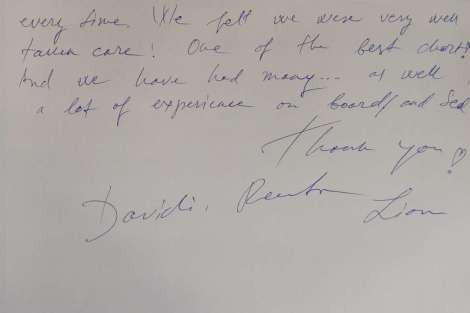 every time. We felt we were very well
taken care! One of the best chart!
And we have had many... as well
a lot of experience on board/ and Sea
Thank you ♡!
Davidi, Reuben
Lion